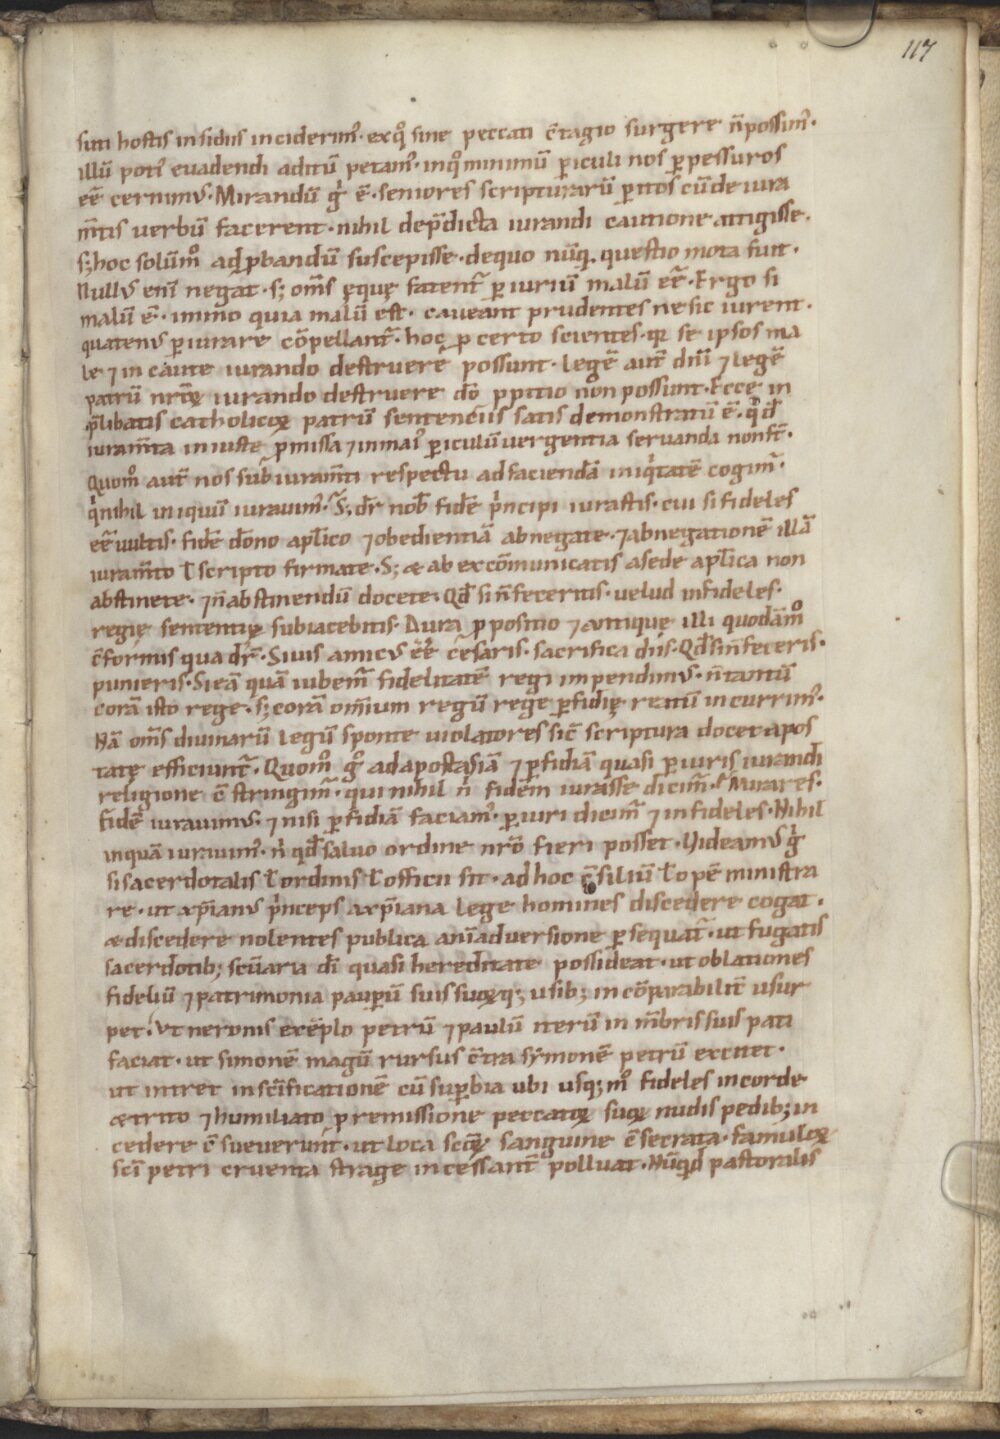 117
siti hostis insidiis inciderim᾽· exqͦ sine peccati c̄tagio surgere n̄ possim᾽·
illū poti᾽ evadendi aditū petam᾽· inq̊ minimū piculi nos ppessuros
eē cernimus· Mirandū gͥ ē· seniores scripturarū pitos cū de iura
m̄tis verbū facerent· nihil de p̄dicta iurandi cautione attigisse·
sꝫ hoc solūm̊ ad ꝓbandū suscepisse· dequo nūq, questio mota fuit·
Nullus eni negat· sꝫ om̄s ęquę fatent᷑ ꝑiuriū malū eē· Ergo si
malū ē· immo quia malū est· caveant prudentes ne sic iurent·
quatenus ꝑiurare cōpellant᷑· hoc ꝓ certo scientes· qꝫ se ipsos ma
le ⁊ incaute iurando destruere possunt· legē aut̄ dn̄i ⁊ legē
patrū nrōꝝ iurando destruere dō ꝓpitio non possunt· Ecce in
p̄libatis catholicoꝝ patrū sentenciis satis demonstratū ē· qd̄
iuram̄ta iniuste p̄missa ⁊ in mai᾽ piculū vergentia servanda non st̄·
Quom̊ aut̄ nos sub iuram̄ti respectu ad faciendā iniq͛tatē cogim᷑·
q͛ nihil iniquū iuravim᾽· S;, dr̄ nob̄ fidē p͛ncipi iurastis· cui si fideles
eē vultis· fidē dōno apl̄ico ⁊ obedientiā abnegate· ⁊ abnegationē illā
iuram̄to ł scripto firmate· Sꝫ & ab excōmunicatis a sede apl̄ica non
abstinete· ⁊ n̄ abstinendū docete· Qd̄ si n̄ feceritis· velud infideles·
regię sententię subiacebitis· Dura ꝓpositio ⁊ antiquę illi quodām̊
c̄formis qua dr̄· Si vis amicus eē cesaris· sacrifica diis· Qd̄ si n̄ feceris·
punieris· Si eā quā iubem᷑ fidelitatē regi impendimus· n̄ tantū
corā isto rege· sꝫ corā omnium regū rege ꝑfidię reatū incurrim᾽·
Nā om̄s divinarū legū sponte violatores sic̄ scriptura docet apos
tatę efficiunt᷑· Quom̊ gͦ ad apostasiā ⁊ ꝑfidiā quasi ꝑ iuris iurandi
religione c̄stringim᷑· qui nihil n͛ fidem iurasse dicim᷑· Mirares·
fidē iuravimus· ⁊ nisi ꝑfidiā faciam᾽· ꝑiuri dicim᷑ ⁊ infideles· Nihil
inquā iuravim᾽· n͛ qd̄ salvo ordine nrō fieri posset· Videamus gͥ
si sacerdotalis ł ordinis ł officii sit· ad hoc c̄siliū ł opē ministra
re· ut xp̄ianus p͛nceps a xp̄iana lege homines discedere cogat·
& discedere nolentes publica anīadversione ꝑsequat᷑· ut fugatis
sacerdotib; scūaria dī quasi hereditate possideat· ut oblationes
fideliū ⁊ patrimonia paupū suis suoꝝq; usib; incōparabilit̄ usur
pet· Ut neronis exēplo petrū ⁊ paulū iterū in m̄bris suis pati
faciat· ut simonē magū rursus c̄tra symonē petrū excitet·
ut intret in scīficationē cū supbia ubi usq;m̊ fideles in corde
c̄trito ⁊ humiliato ꝓ remissione peccatoꝝ suoꝝ nudis pedib; in
cedere c̄sueverunt· ut loca scōꝝ sanguine c̄secrata· famuloꝝ
scī petri cruenta strage incessant̄ polluat· Nūqd̄ pastoralis